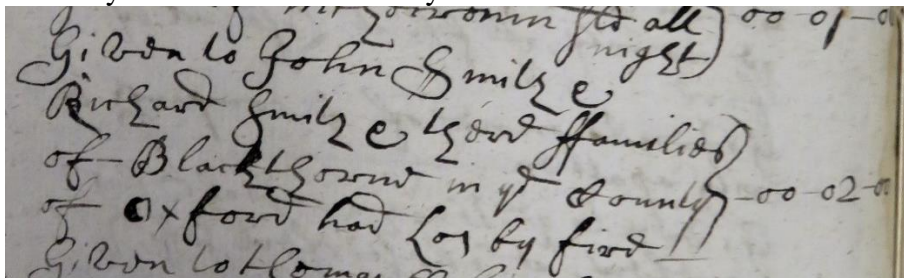 all 00-01-0
night
Given to John Smith &
Richard Smith & there ffamilies
of Blackthorne in ye County -00-02-0
of Oxford had Los by fire
Given to Thomas